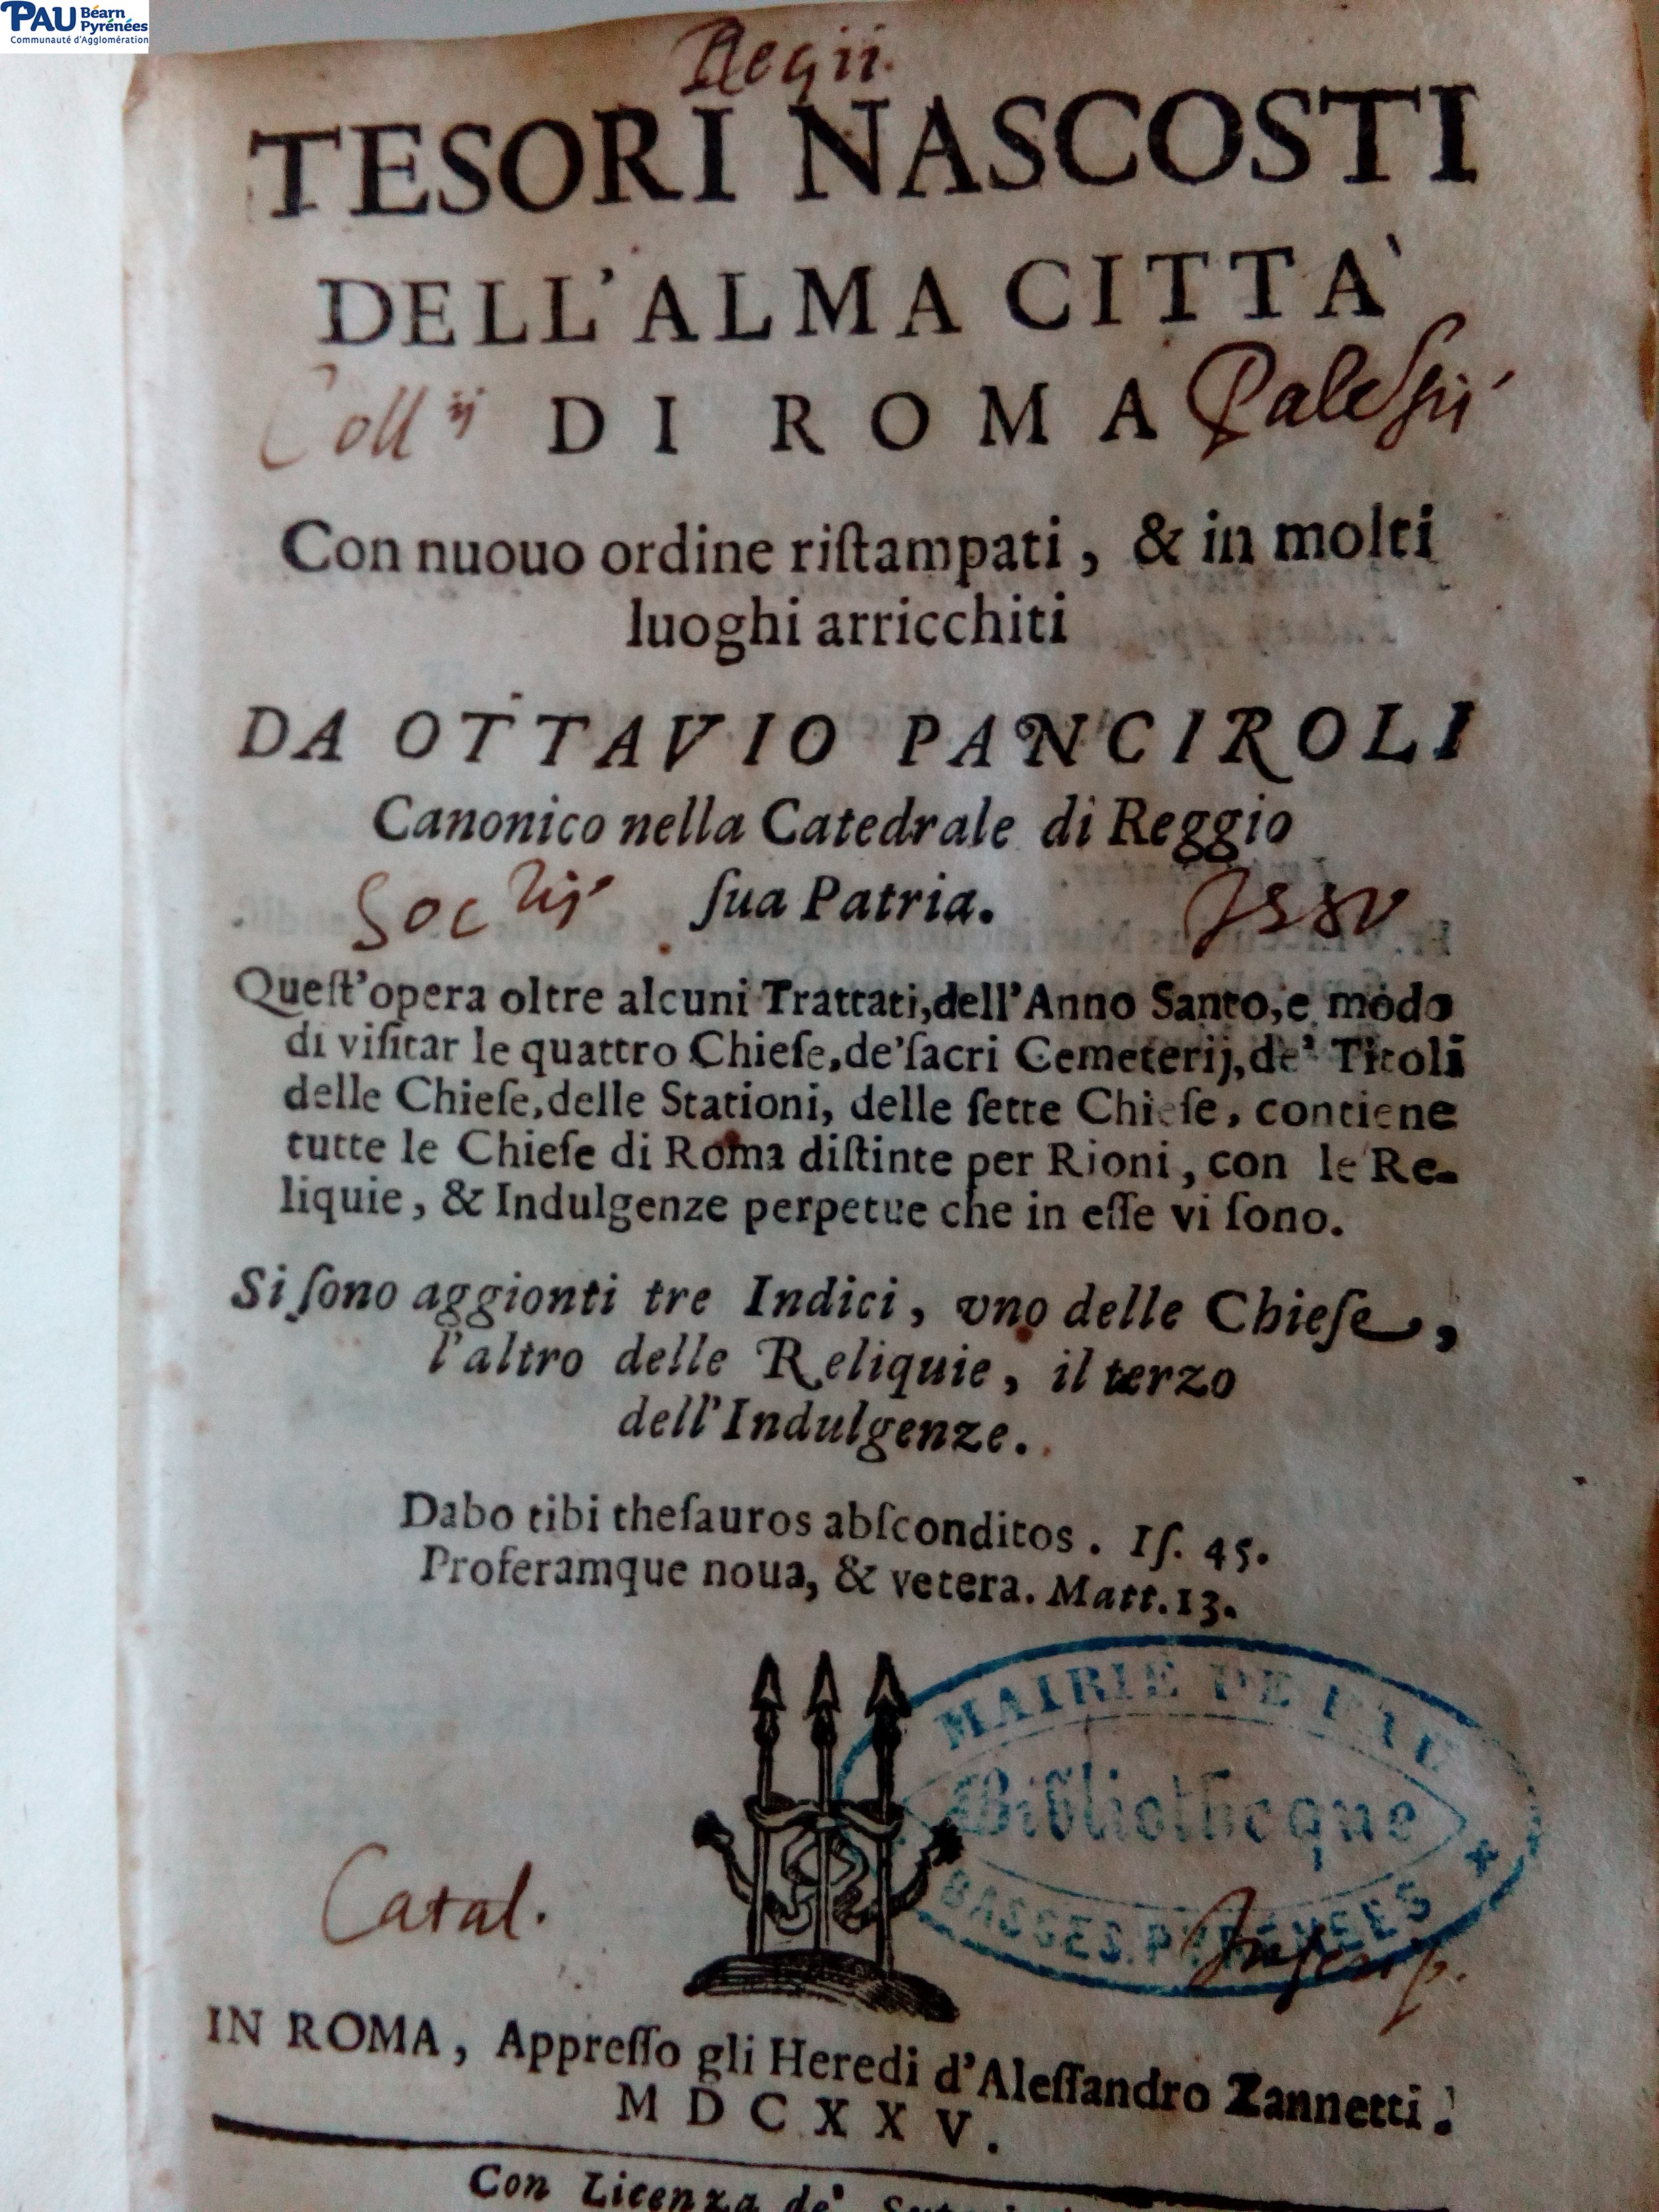 PAU Béarn
Pyrénées
Communauté d'Agglomération
Regii.
TESORI NASCOSTI
DELL'ALMA CITTA'
Collij DI ROMA Palẽsis
Con nuouo ordine riſtampati, & in molti
luoghi arricchiti
DA OTTAVIO PANCIROLI
Canonico nella Catedrale di Reggio
Soctis ſua Patria. Jesu
Queſt'opera oltre alcuni Trattati, dell'Anno Santo, e modo
di viſitar le quattro Chieſe, de' ſacri Cemeterij, de' Titoli
delle Chieſe, delle Stationi, delle ſette Chieſe, contiene
tutte le Chieſe di Roma diſtinte per Rioni, con le Re-
liquie, & Indulgenze perpetue che in eſſe vi ſono.
Si ſono aggionti tre Indici, vno delle Chieſe,
l'altro delle Reliquie, il terzo
dell'Indulgenze.
Dabo tibi theſauros abſconditos. Iſ. 45.
Proferamque noua, & vetera. Matt. 13.
MAIRIE DE PAU
Bibliotheque
BASSES.PYRENEES
Catal. Inscrip.
IN ROMA, Appreſſo gli Heredi d'Aleſſandro Zannetti.
MDCXXV.
Con Licenza de'